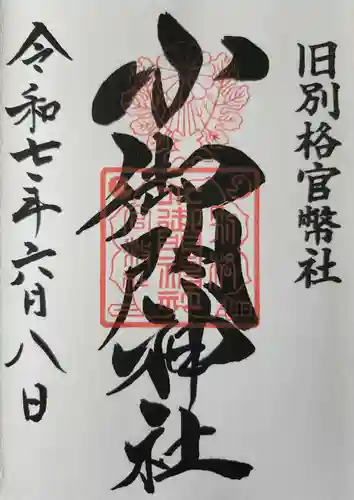 旧別格官幣社
小御門神社
令和七年六月八日